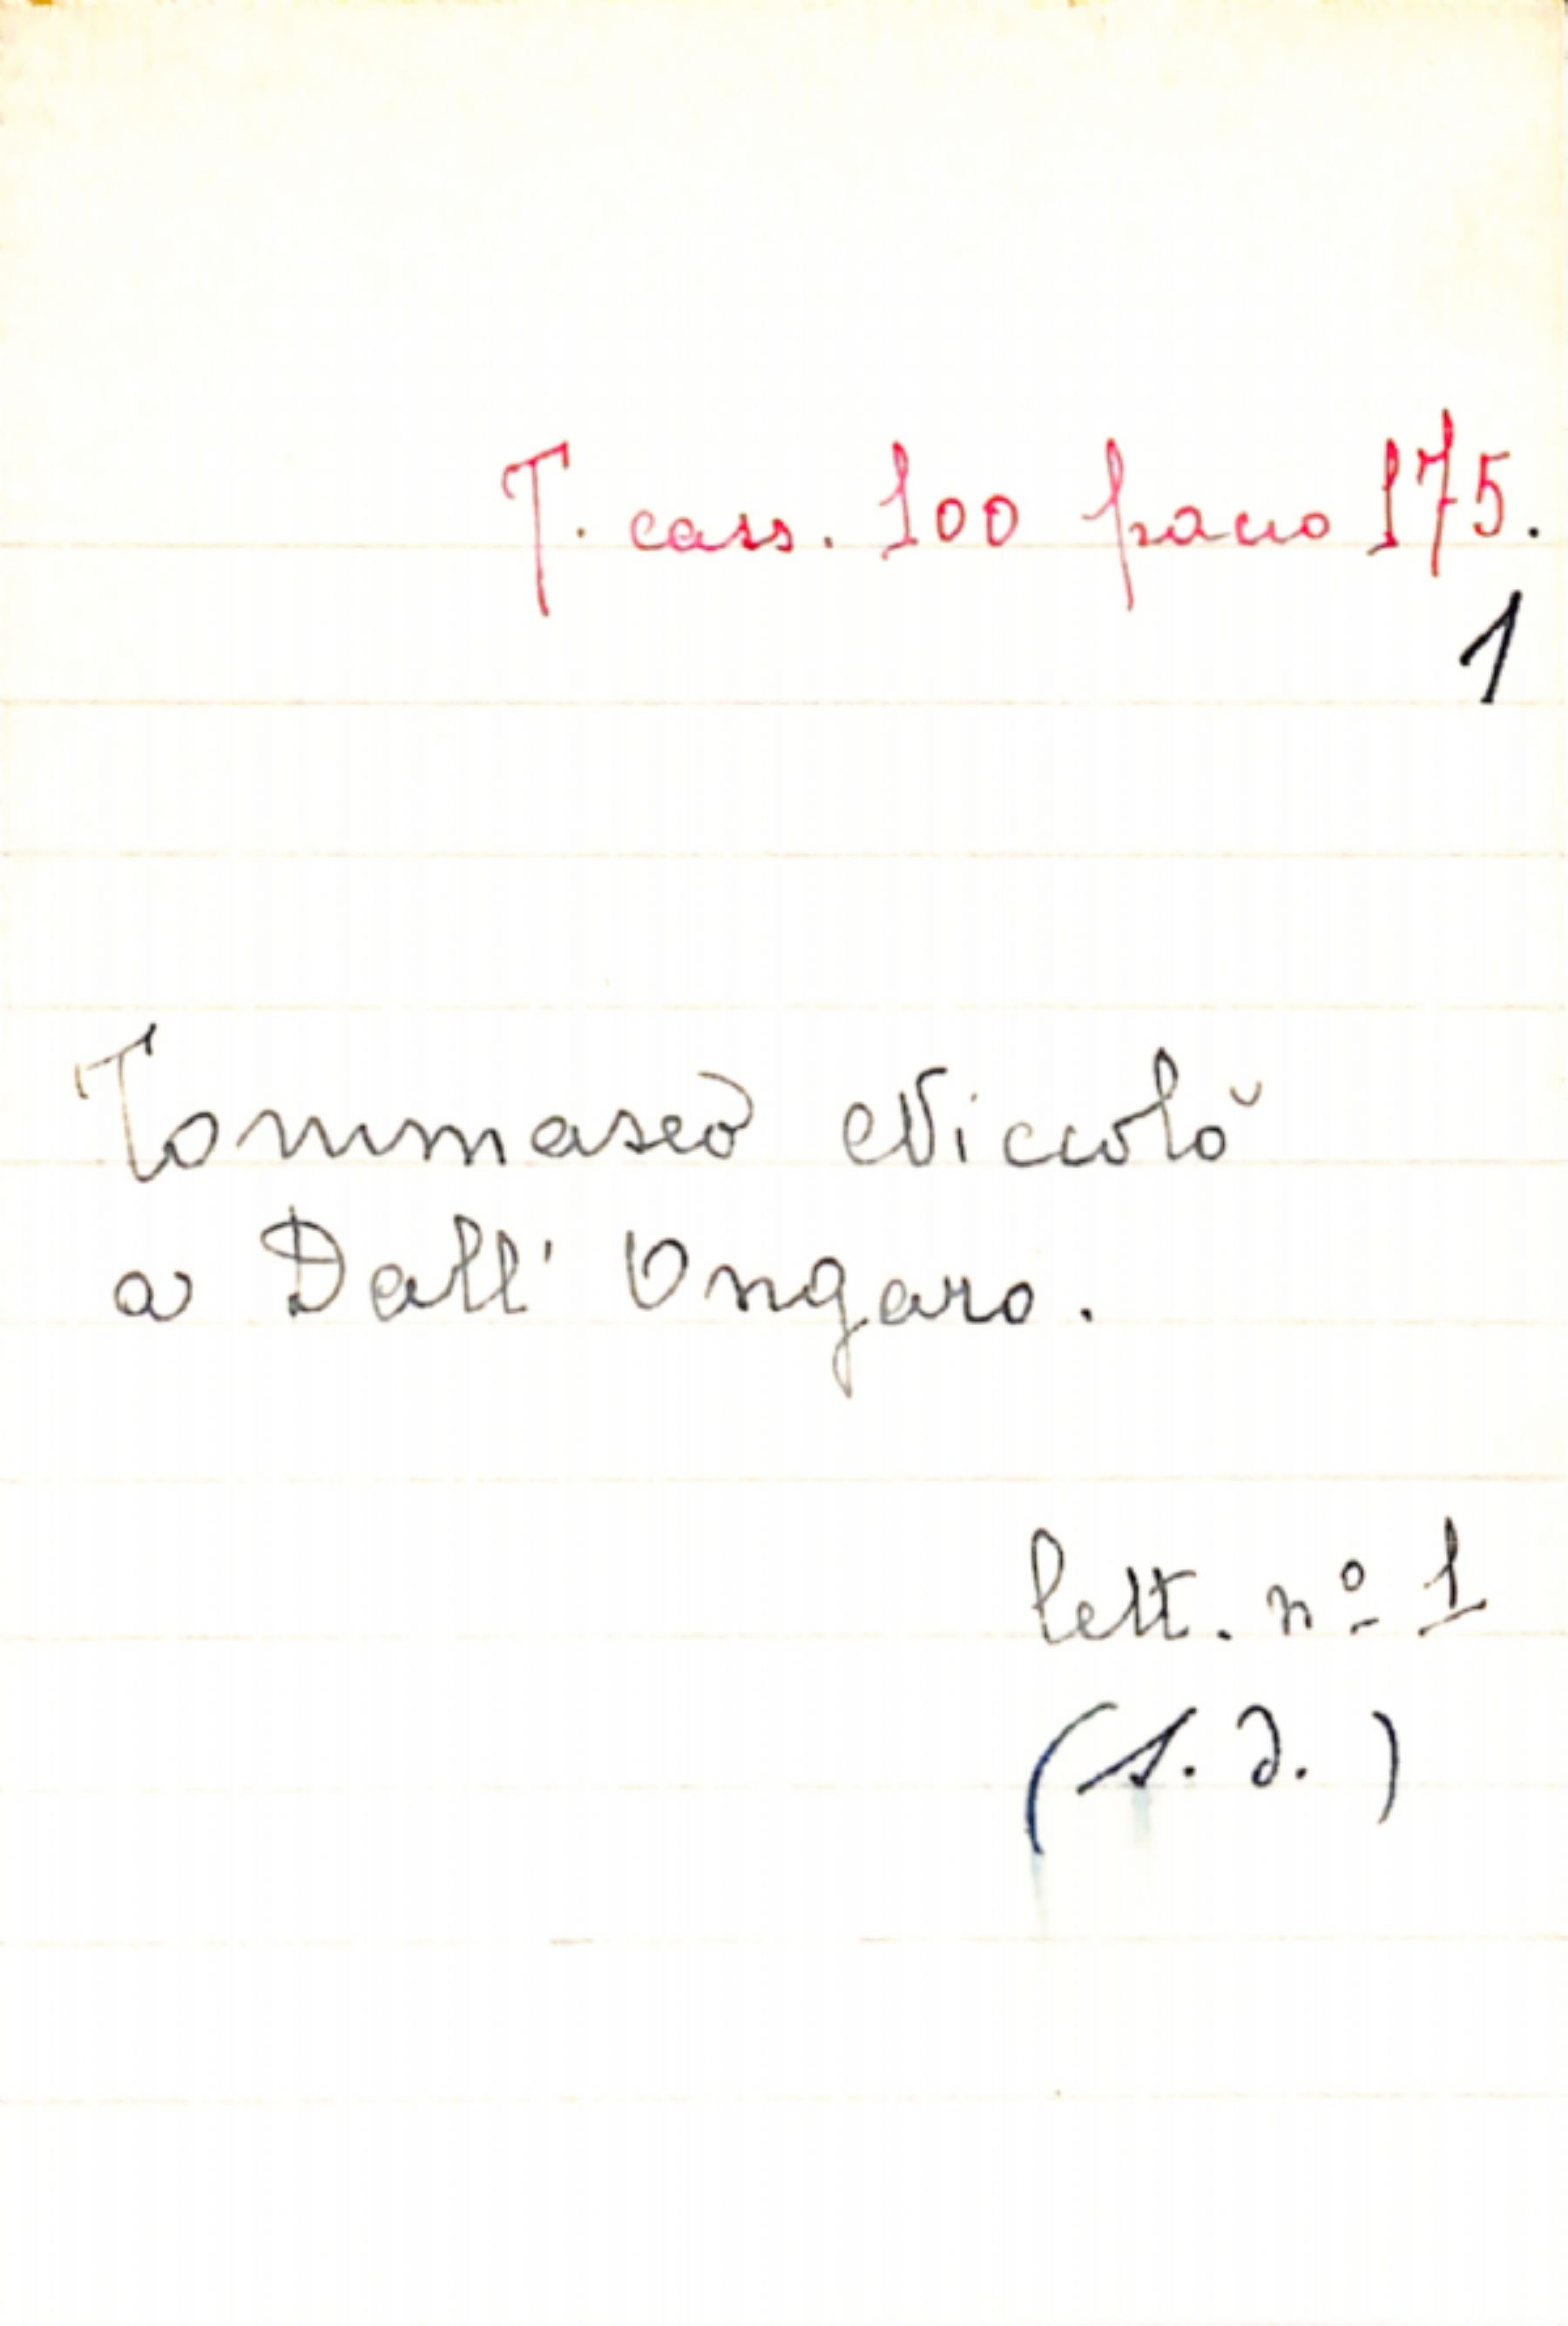 T. cass. 100 pacco 175.
1
Tommaseo Niccolò
a Dall' Ongaro.
lett. nº 1
(s. d.)